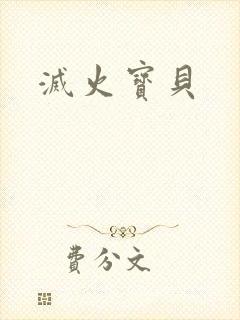 滅火寶貝
費分文